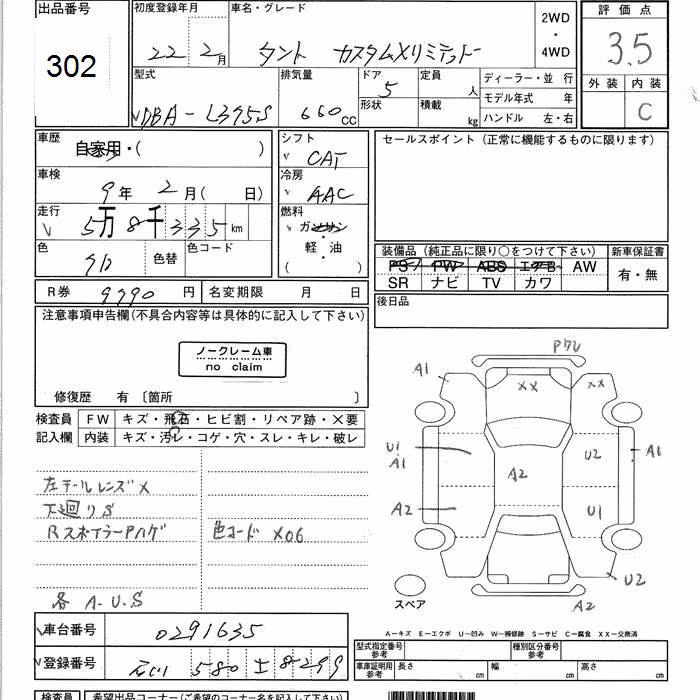 出品番号 初度登録年月 車名・グレード 2WD・4WD 評価点
302 22年2月 タント カスタムXリミテッド 3.5
型式 排気量 ドア 定員 ディーラー・並行 外装 内装
DBA-L375S 660CC 5 人 モデル年式 年 C
形状 積載 kg ハンドル 左・右
車歴 自家用・( ) シフト CAT セールスポイント (正常に機能するものに限ります)
車検 9年2月( 日) 冷房 AAC
走行 5万8千335km 燃料 ガソリン・軽・油 ( )
色 クロ 色替 色コード
装備品 (純正品に限り〇をつけて下さい) 新車保証書
PS PW ABS エアB AW 有・無
SR ナビ TV カワ
R券 9990円 名変期限 月 日 後日品
注意事項申告欄(不具合内容等は具体的に記入して下さい)
ノークレーム車
no claim
修復歴 有 〔箇所 〕
検査員 FW キズ・飛石・ヒビ割・リペア跡・X要
記入欄 内装 キズ・汚レ・コゲ・穴・スレ・キレ・破レ
左テールレンズX
下廻りS
Rスポイラーアハゲ 色コード X06
各 A・U・S
A1 XX XX
U1 A1 A2 U2 A1
A2 U1
U2
スペア A2
A-キズ E-エクボ U-凹み W-補修跡 S-サビ C-腐食 XX-交換済
車台番号 0291635
型式指定番号 参考 種別区分番号 参考
登録番号 石川 580
車庫証明用 参考 長さ cm 幅 cm 高さ cm
検査員 希望出品コーナー(ご希望のコーナー名を記入して下さい)